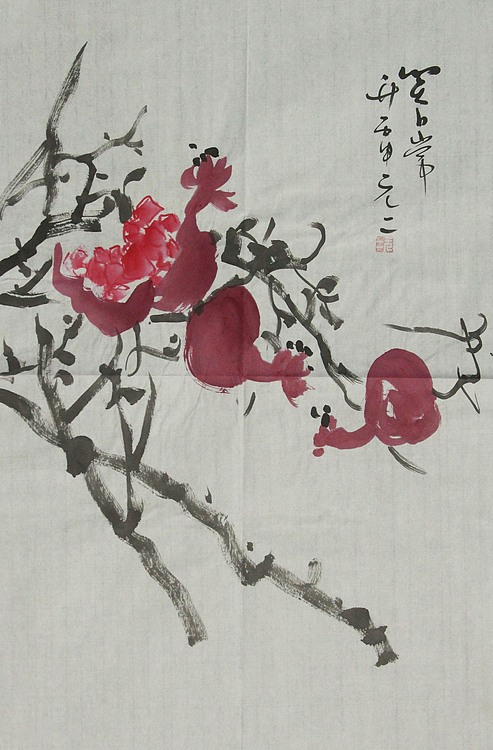 笑口常
开丙申元二